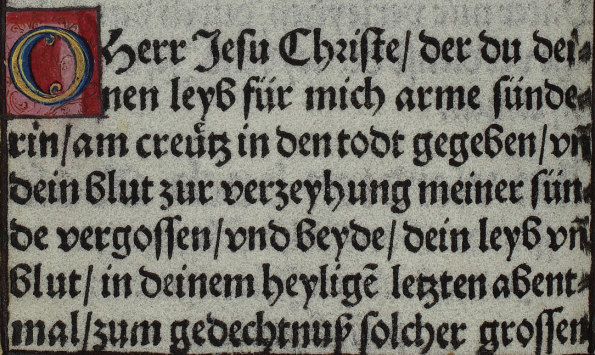 O Herr Jesu Christe/ der du dei⸗
nen leyb für mich arme sünde⸗
rin/am creütz in den todt gegeben/vñ
dein blut zur verzeyhung meiner sün⸗
de vergossen/vnd beyde/dein leyb vñ
blut/ in deinem heyligẽ letzten abent⸗
mal/zum gedechtnuß solcher grossen